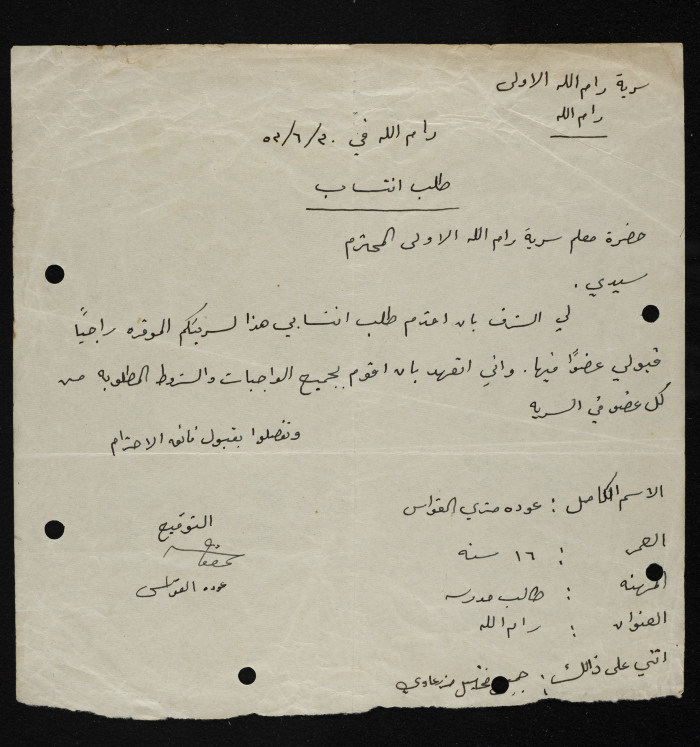 سرية رام الله الاولى
رام الله
رام الله في ٣٠/٦/٥٣
طلب انتساب
حضرة معلم سرية رام الله الاولى المحترم
سيدي .
لي الشرف بان اقدم طلب انتسابي هذا لسريتكم الموقره راجياً
قبولي عضوًا فيها . واني اتعهد بان اقوم بجميع الواجبات والشروط المطلوبه من
كل عضو في السريه
وتفضلوا بقبول فائق الاحترام
الاسم الكامل : عوده متري القواس
العمر : ١٦ سنه
المهنه : طالب مدرسه
العنوان : رام الله
اثني على ذالك :
التوقيع
عوده القواس